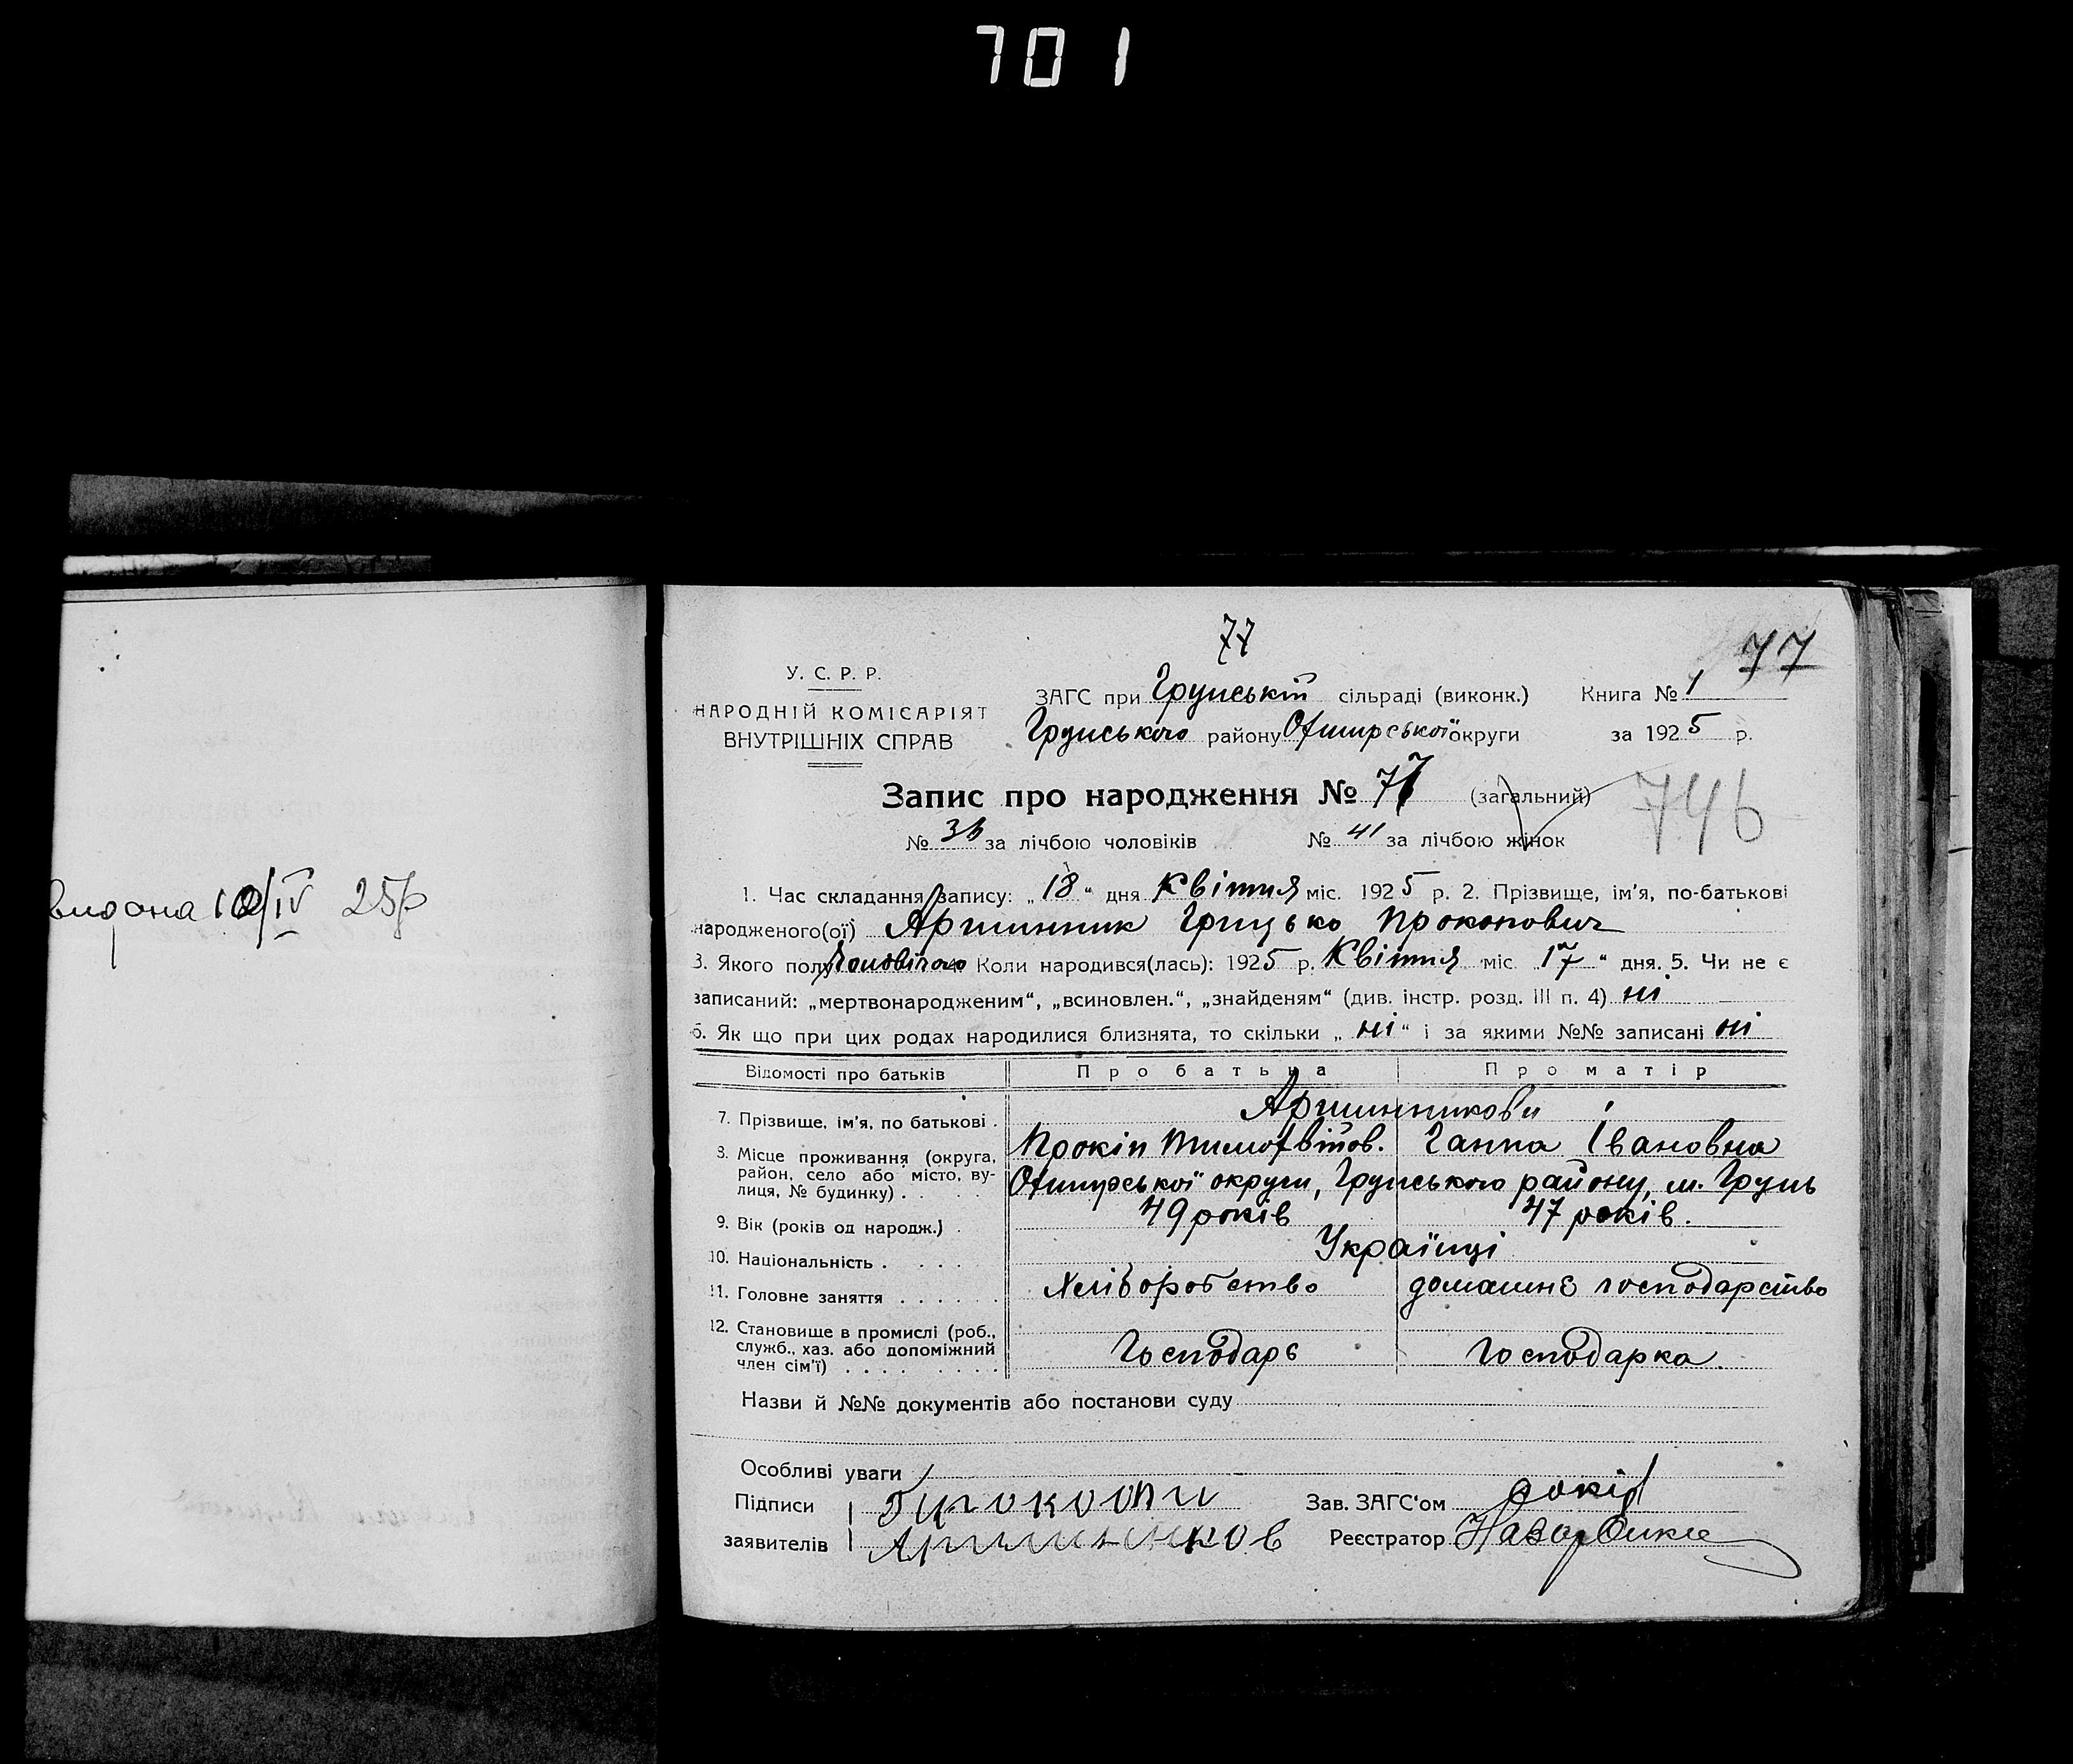 701
видана 10/IV 25р
77
77
У. С. Р. Р.
НАРОДНІЙ КОМІСАРІЯТ
ВНУТРІШНІХ СПРАВ
ЗАГС при Грунській сільраді (виконк.) Книга № 1
Грунського району Охтирської округи за 1925 р.
Запис про народження № 77 (загальний)
746
№ 36 за лічбою чоловіків № 41 за лічбою жінок
1. Час складання запису: „18“ дня Квітня міс. 1925 р. 2. Прізвище, ім'я, по-батькові
народженого(ої) Аршинник Грицько Прокопович
3. Якого полу Чоловічого 4. Коли народився(лась): 1925 р. Квітня міс. „17“ дня. 5. Чи не є
записаний: „мертвонародженим“, „всиновлен.“, „знайденям“ (див. інстр. розд. III п. 4) ні
6. Як що при цих родах народилися близнята, то скільки „ні“ і за якими №№ записані ні
Відомості про батьків Про батька Про матір
7. Прізвище, ім'я, по батькові . Аршинникови
Прокіп Тимофійов. Ганна Івановна
8. Місце проживання (округа,
район, село або місто, ву-
лиця, № будинку) . . . . Охтирської округи, Грунського району, м. Грунь
9. Вік (років од народж.) . 49 років 47 років.
10. Національність . . . . Українці
11. Головне заняття . . . . . . Хліборобство домашнє господарство
12. Становище в промислі (роб.,
служб., хаз. або допоміжний
член сім'ї) . . . . . . . . Господарь Господарка.
Назви й №№ документів або постанови суду
Особливі уваги
Підписи
заявителів
Зав. ЗАГС'ом
Реєстратор